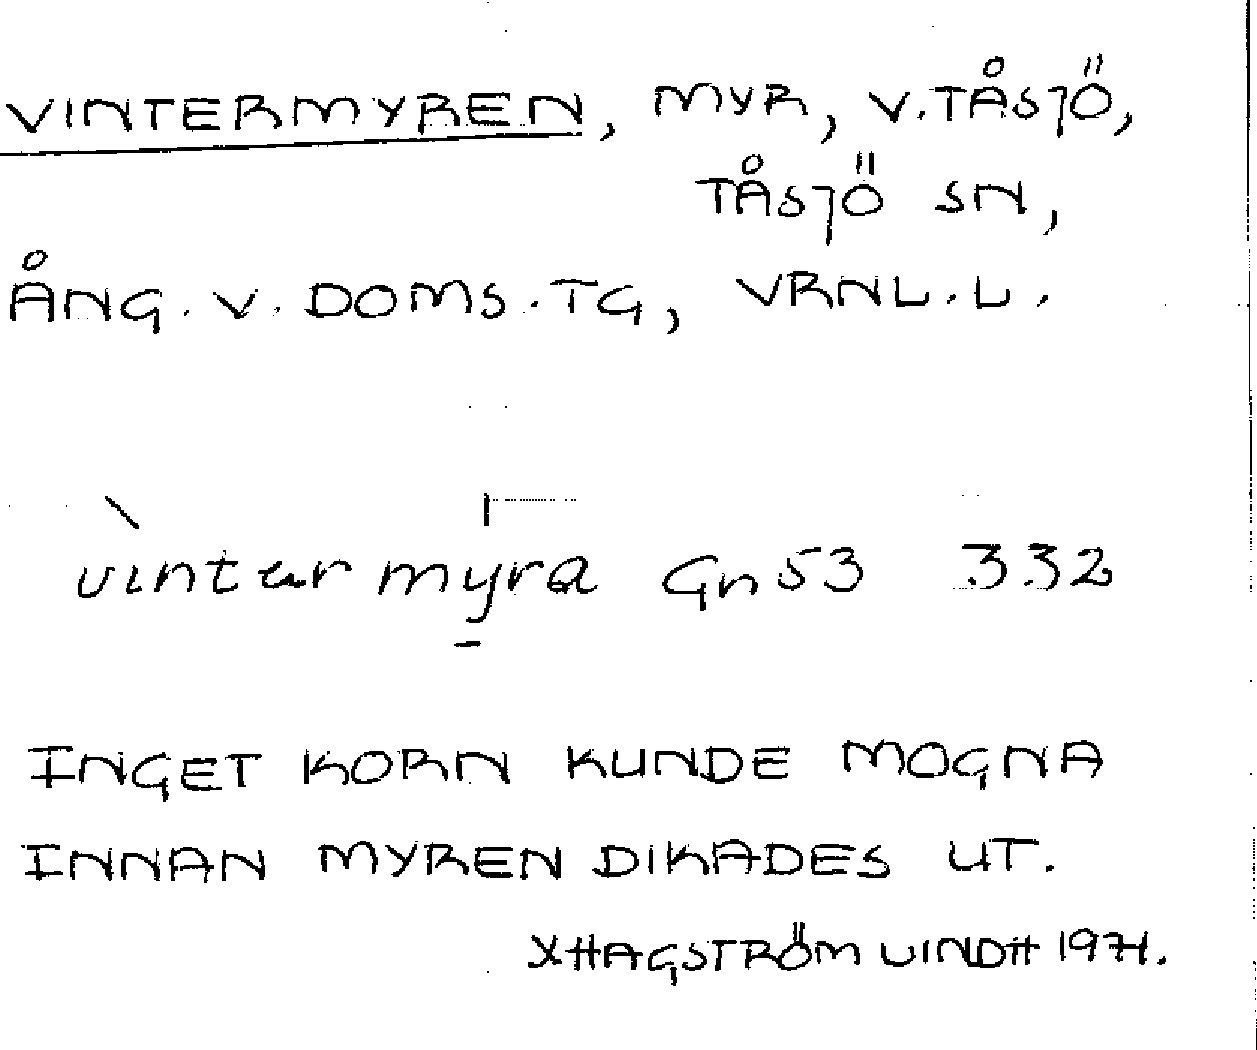 VINTERMYREN, MYR, V.TÅSJÖ,
TÅSJÖ SN,
ÅNG. V. DOMS.TG, VRNL.L.
vintermyra Gn 53 332
INGET KORN KUNDE MOGNA
INNAN MYREN DIKADES UT.
HAGSTRÖM